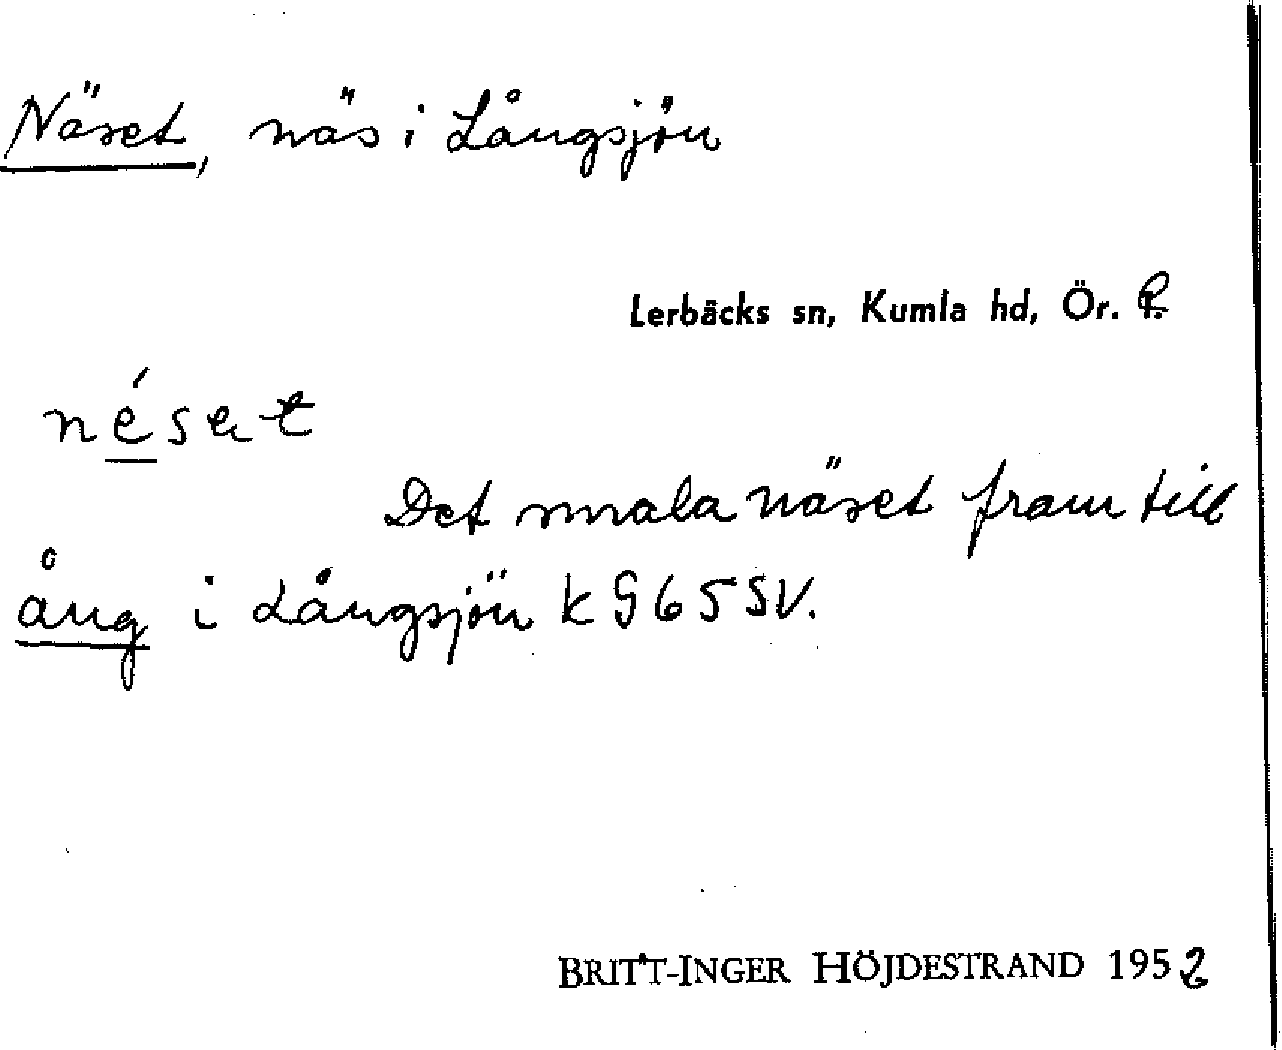 Näset, näs i Långsjön
Lerbäcks sn, Kumla hd, Ör.
nésɐt
Det smala näset fram till
äng i Långsjön k 965 SV.
BRITT-INGER HÖJDESTRAND 1952